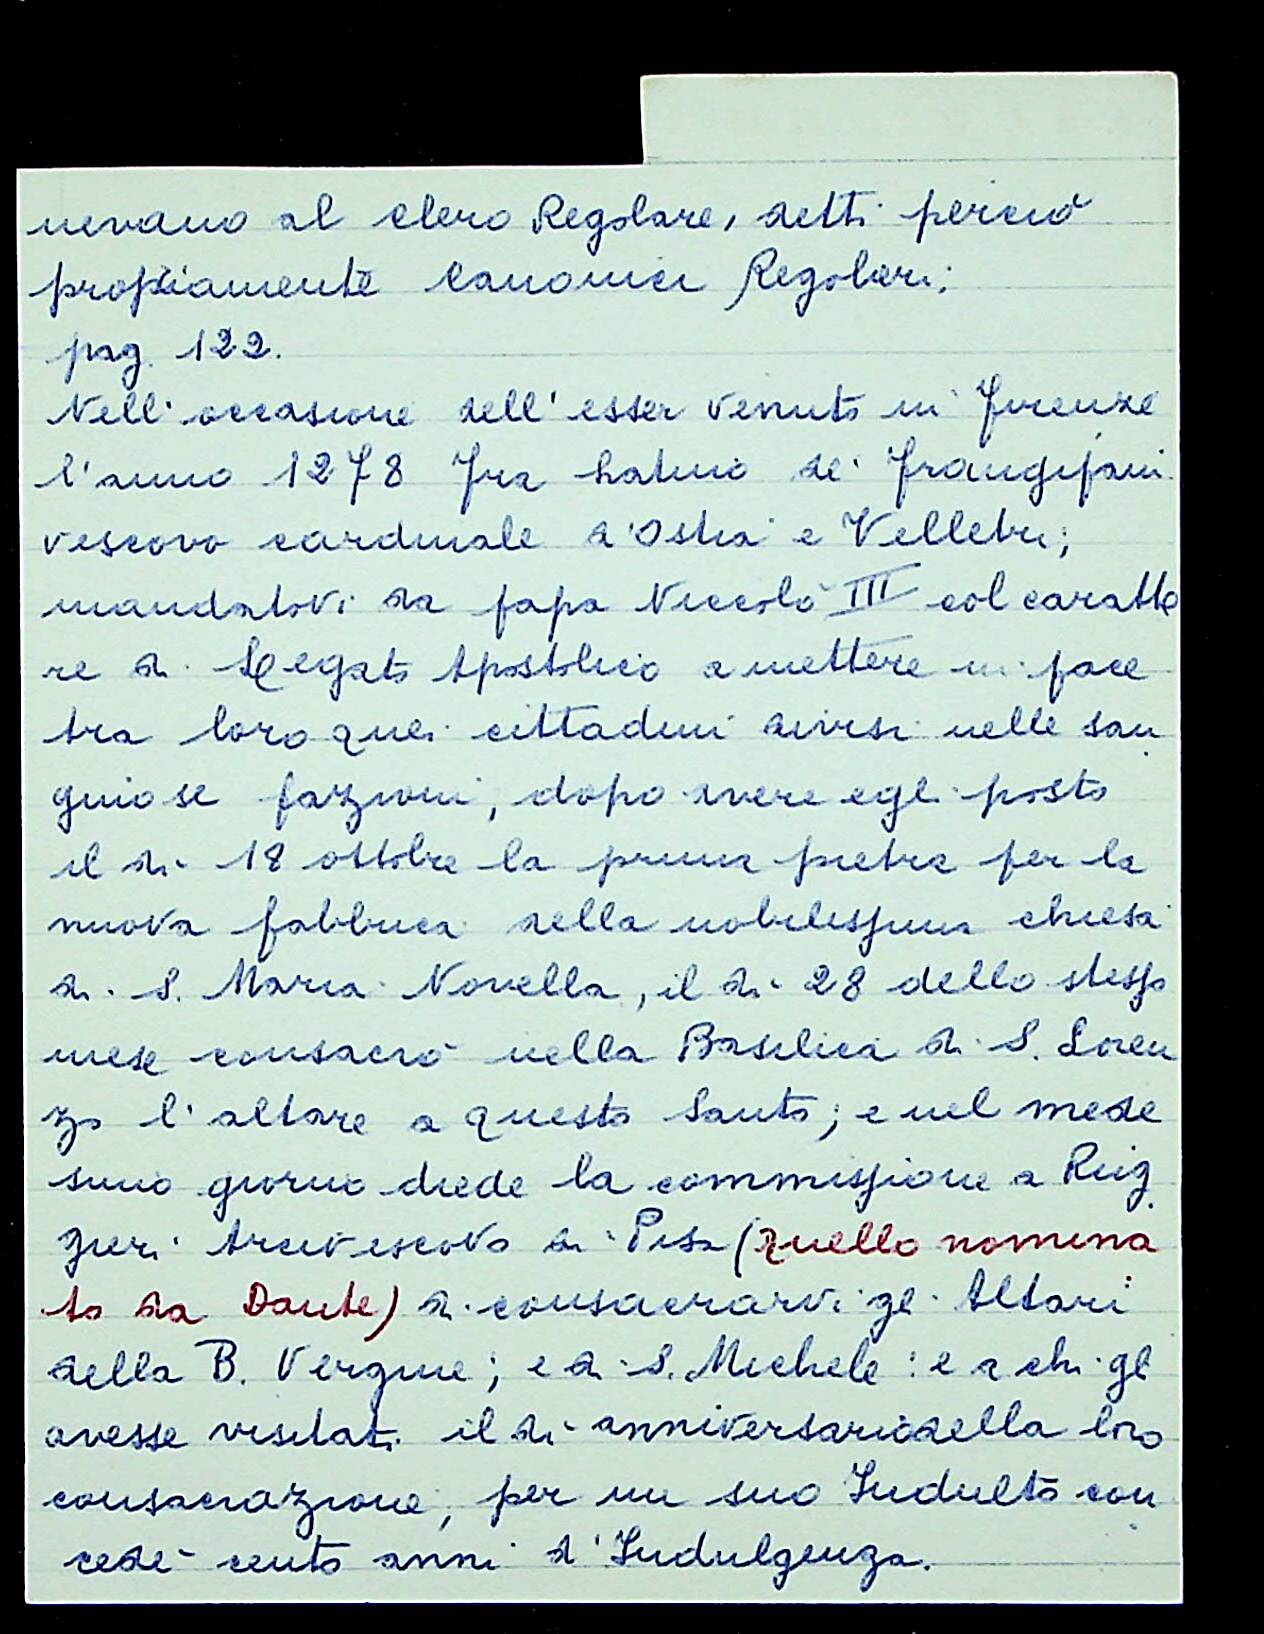 nevano al clero Regolare, detti perciò
propriamente Canonici Regolari;
pag. 122.
Nell'occasione dell'esser venuto in Firenze
l'anno 1278 Fra Latino de' Frangipani
vescovo cardinale d'Ostia e Velletri;
mandatovi da papa Niccolò III col caratte
re di Legato Apostolico a mettere in pace
tra loro quei cittadini divisi nelle san
guiose fazzioni, dopo avere egli posto
il dì 18 ottobre la prima pietra per la
nuova fabbrica della nobilissima chiesa
di S. Maria Novella, il dì 28 dello stesso
mese consacrò nella Basilica di S. Loren
zo l'altare a questo Santo; e nel mede
simo giorno diede la commissione a Rug
gieri Arcivescovo di Pisa (quello nomina
to da Dante) di consacrarvi gl. Altari
della B. Vergine; e di S. Michele: e a chi gl
avesse visitati il dì anniversario della loro
consacrazione, per un suo Indulto con
cedè cento anni d'Indulgenza.